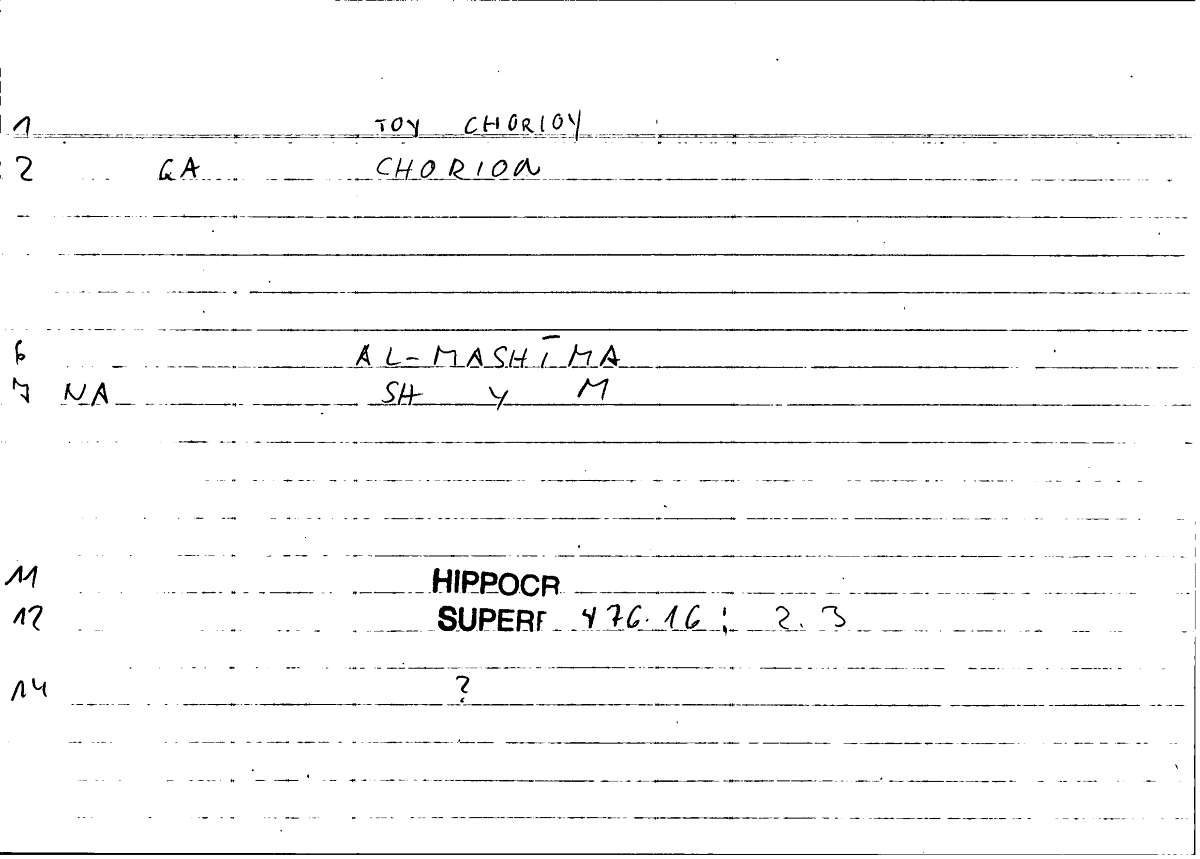 1 TOY CHORIOY
2 GA CHORION
6 AL-MASHĪMA
7 NA SH Y M
11 HIPPOCR
12 SUPERF 476.16; 2.3
14 ?